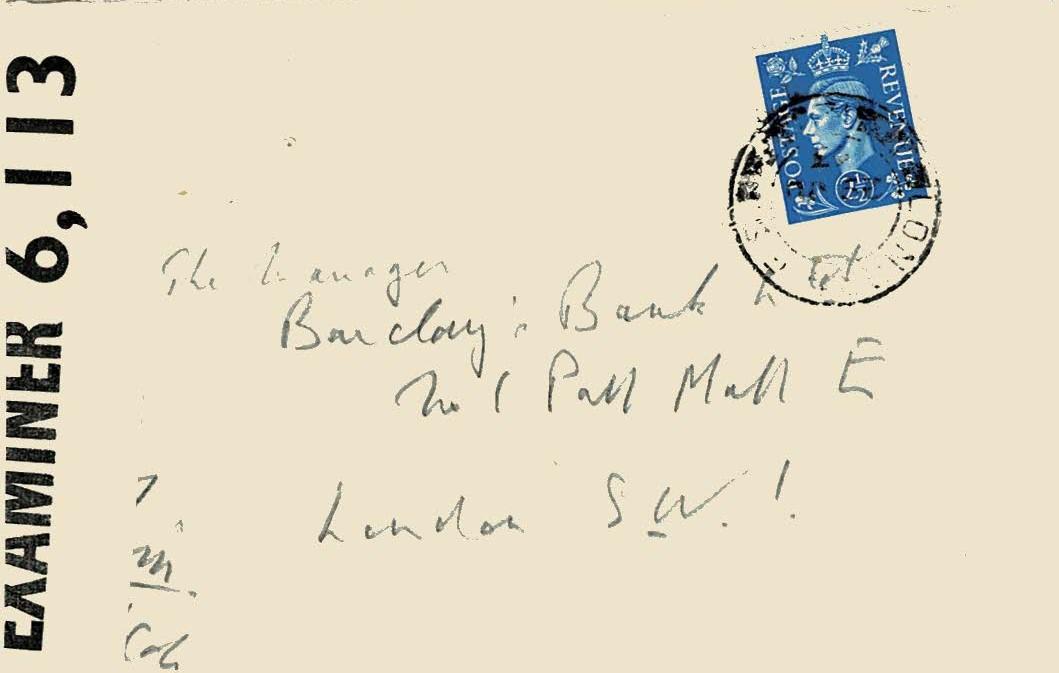 EXAMINER 6,113
POSTAGE REVENUE
2½
The Manager
Barclay's Bank Ltd
No 1 Pall Mall E
London S.W.1.